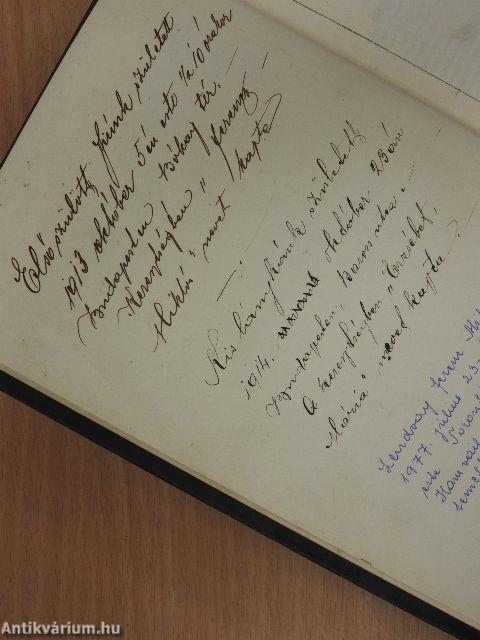 Első szülött fiúnk született
1913 október 5én este ½10 órakor
Budapesten Bókay tér.
Keresztségben "Ferenc
Miklós" nevet kapta
Kis lánykánk született
1914. október 23án
Budapesten, Baross utca
A keresztségben "Erzsébet,
Mária" nevet kapta
Lendvay Ferenc
1977. július 23
este
Antikvárium.hu